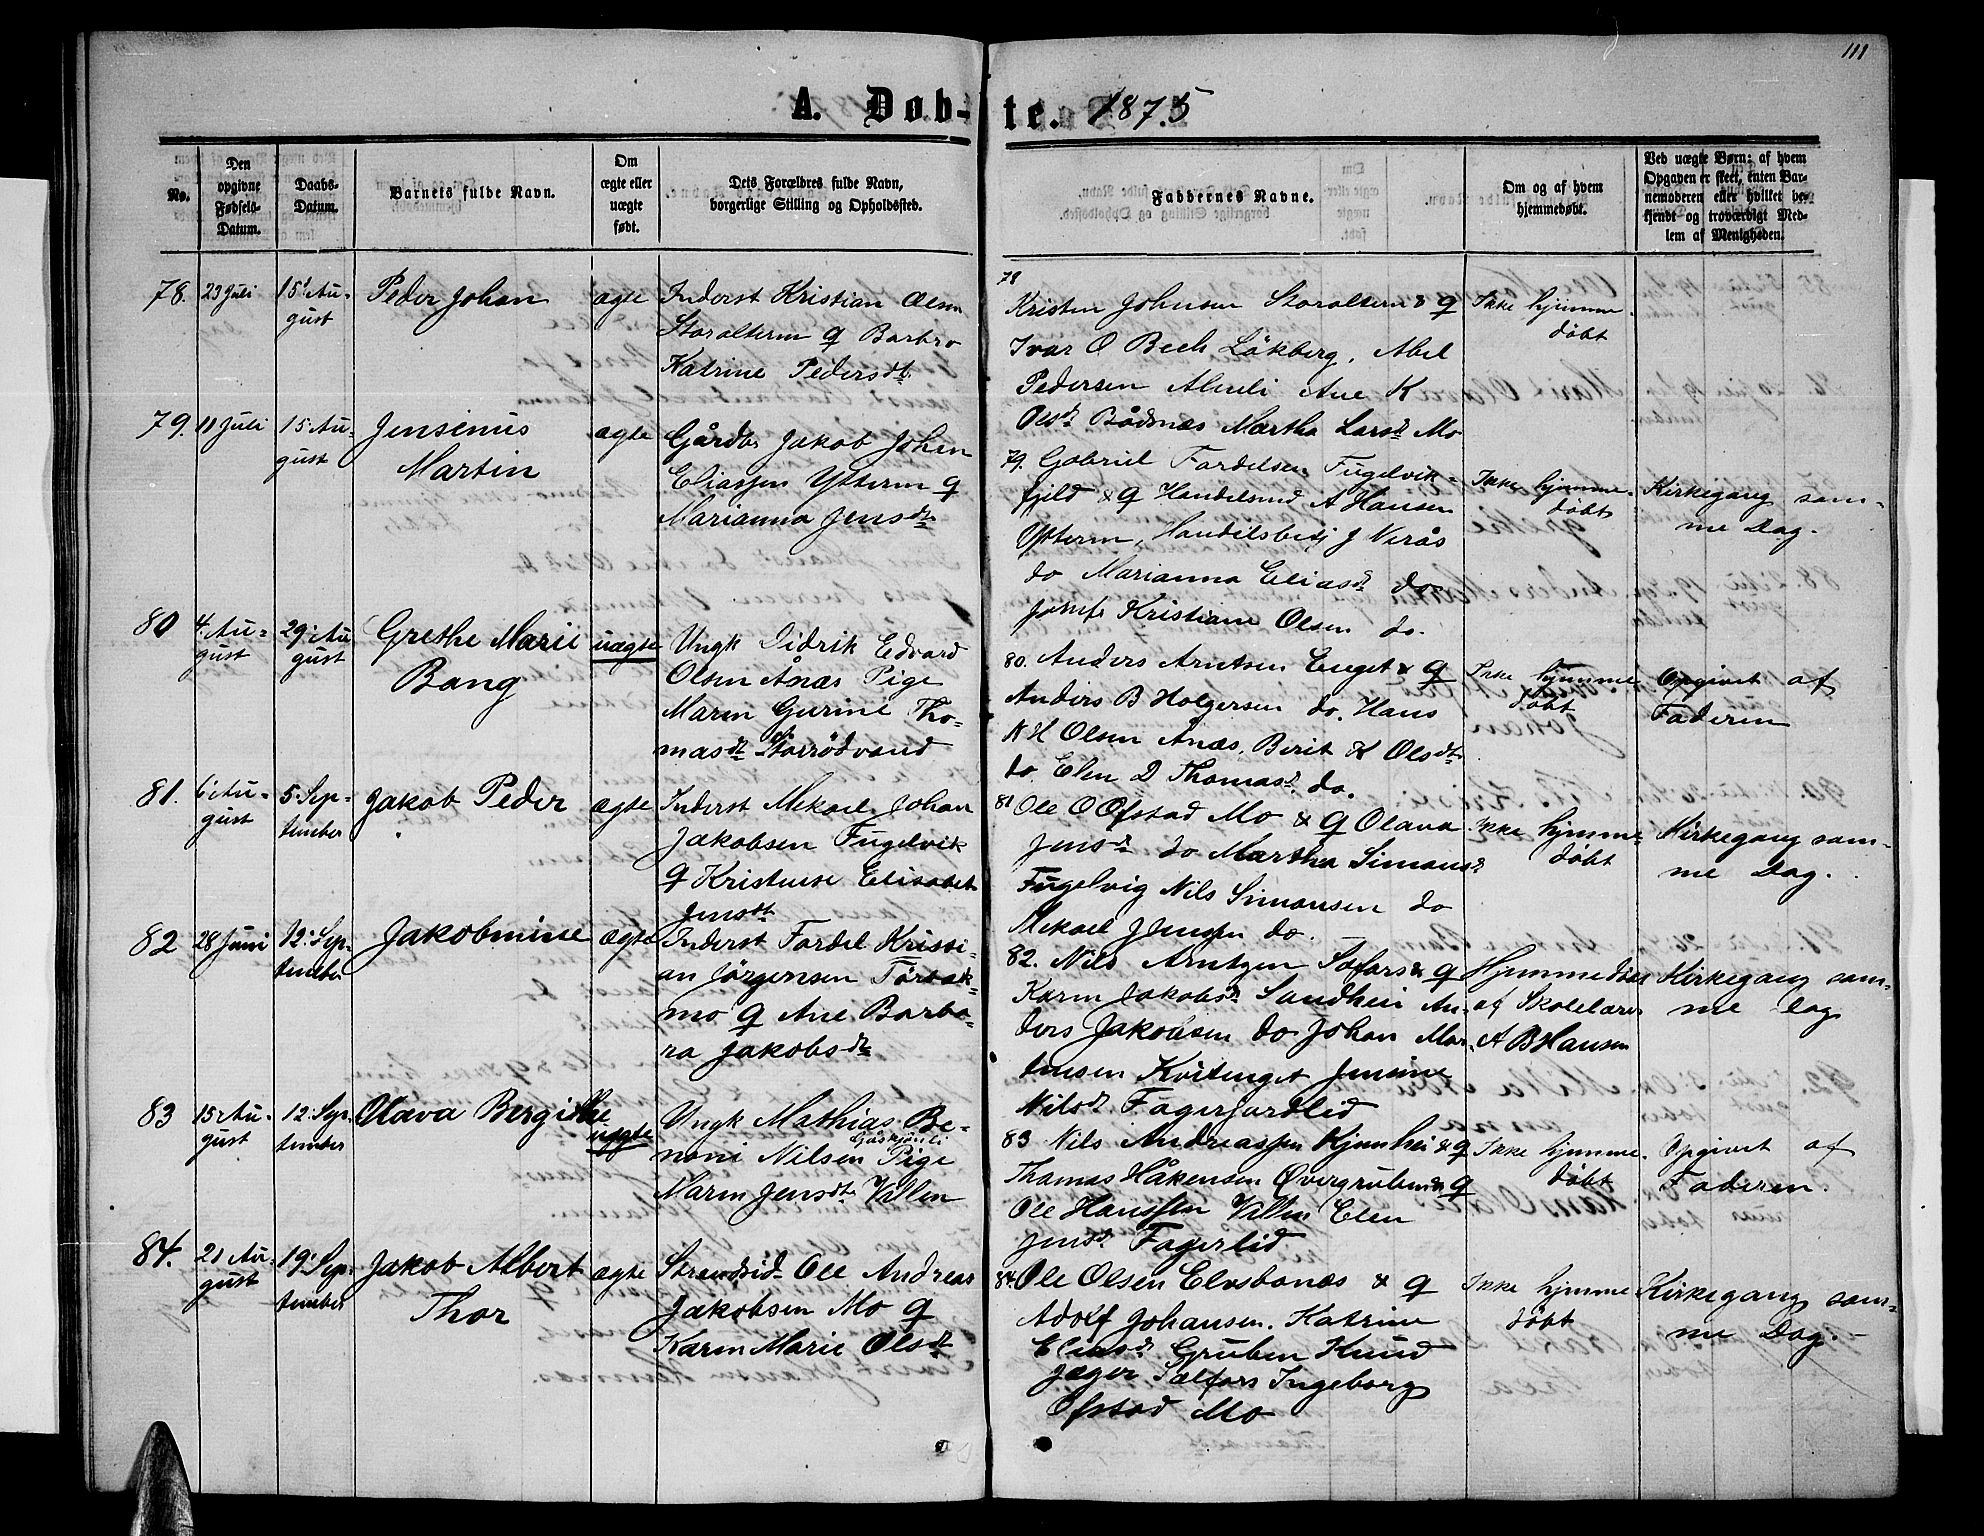 111
A. Døb-te. 1875
No.
Den
opgivne
Fødsels-
Datum.
Daabs-
Datum.
Barnets fulde Navn.
Om
ægte eller
uægte
født.
Dets Forældres fulde Navn,
borgerlige Stilling og Opholdssted.
Faddernes Navne.
Om og af hvem
hjemmedøbt.
Ved uægte Børn: af hvem
Opgaven er skeet, enten Bar-
nemoderen eller hvilket be-
kjendt og troværdigt Med-
lem af Menigheden.
78.
23 Juli
15 Au-
gust
Peder Johan
ægte
Inderst Kristian Olsen
Storalteren & Barbro
Katrine Pedersdt.
78
Kristen Johnsen Storalteren & q
Ivar O Bech Låkberg, Abel
Pedersen Alteneli Ane K
Olsdt Bådsnæs Martha Larsdt Mo
Ikke hjemme-
døbt
79.
11 Juli
15 Au-
gust
Jensenius
Martin
ægte
Gårdbr Jakob Johan
Eliassen Ytteren q
Marianna Jensdt
79. Gabriel Fordelsen Fugelvik-
fjeld & q Handelsmd A Hansen
Ytteren, Handelsbetj J Nerås
do Marianna Eliasdt do
Josefe Kristiane Olsen do.
Ikke hjemme-
døbt
Kirkegang sam-
me Dag.
80
4. Au-
gust
29. Au
gust
Grethe Marie
Bang
uægte
Ungk Didrik Edvard
Olsen Ånæs Pige
Maren Gurine Tho-
masdt Storrødvand
80. Anders Arntsen Enget & q
Anders B Holgersen do. Hans
N H Olsen Ånæs, Berit K Olsdt
do, Elen D Thomasdt. do.
Ikke hjemme
døbt
Opgivet af
Faderen
81.
6 Au-
gust
5 Sep-
tember
Jakob Peder
ægte
Inderst Mekael Johan
Jakobsen Fugelvik
q Kristense Elisabet
Jensdt
81 Ole O Ofstad Mo & q Olava
Jensdt do Martha Simonsdt
Fugelvig Nils Simonsen do
Mekael J Jensen do.
Ikke hjemme-
døbt
Kirkegang sam-
me Dag.
82
28 Juni
12. Sep-
tember
Jakobmine
ægte
Inderst Fordel Kristi-
an Jørgensen Torbak-
mo q Ane Barba-
ra Jakobsdt
82. Nils Arntzen Selfors & q
Karen Jakobsdt Sandhei An-
ders Jakobsen do Johan Mor-
tensen Kvitenget Jensine
Nilsdt Fagerjordlid
Hjemmedøbt
af Skolelærer
A B Hansen
Kirkegang sam-
me Dag
83
15 Au-
gust
12. Sep-
tember
Olava Bergithe
uægte
Ungk Mathias Be-
noni Nilsen Pige
Maren Jensdt Vallen
83 Nils Andreassen Hjemhei & q
Thomas Håkensen Øvergruben & q
Ole Hanssen Vallen Elen
Jensdt Fagerlid
Ikke hjemme-
døbt
Opgivet af
Faderen.
84.
21 Au-
gust
19. Sep-
tember
Jakob Albert
Thor
ægte
Strandsid Ole Andreas
Jakobsen Mo q
Karen Marie Olsdt
84. Ole Olsen Elvsbanæs & q
Adolf Johansen, Katrine
Eliasdt Gruben Knud
Jæger Selfors Ingeborg
Ofstad Mo
Ikke hjemme
døbt
Kirkegang sam-
me Dag.